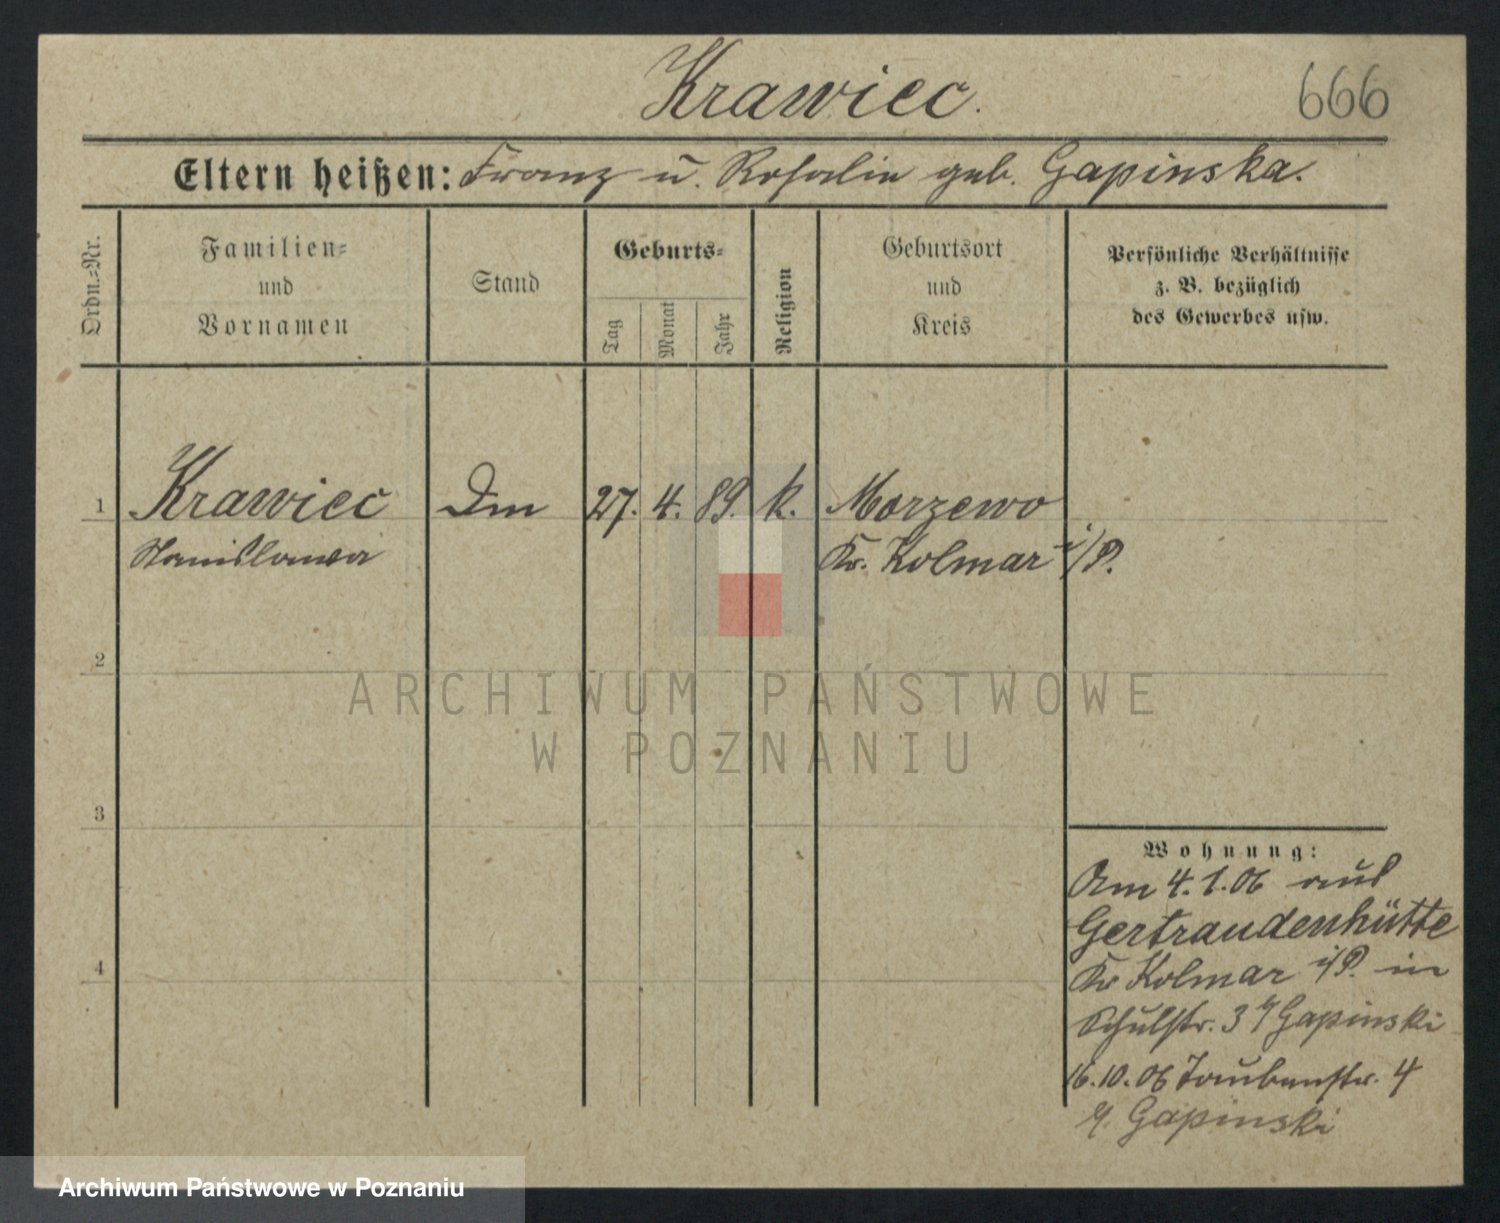 Krawiec.
666
Eltern heißen: Franz u. Rosalie geb. Gapinska.
Ordn.-Nr.
Familien- und Vornamen
Stand
Geburts-
Tag
Monat
Jahr
Religion
Geburtsort und Kreis
Persönliche Verhältnisse
z. B. bezüglich
des Gewerbes usw.
1 Krawiec Dm 27. 4. 89. k. Morzewo
Stanislawa Kr. Kolmar i/P.
2
ARCHIWUM PAŃSTWOWE
W POZNANIU
3
Wohnung:
Am 4.1.06 aus
Gertraudenhütte
4
Kr Kolmar i/P. in
Schulstr. 3 b/ Gapinski
16.10.06 Taubenstr. 4
b/ Gapinski
Archiwum Państwowe w Poznaniu